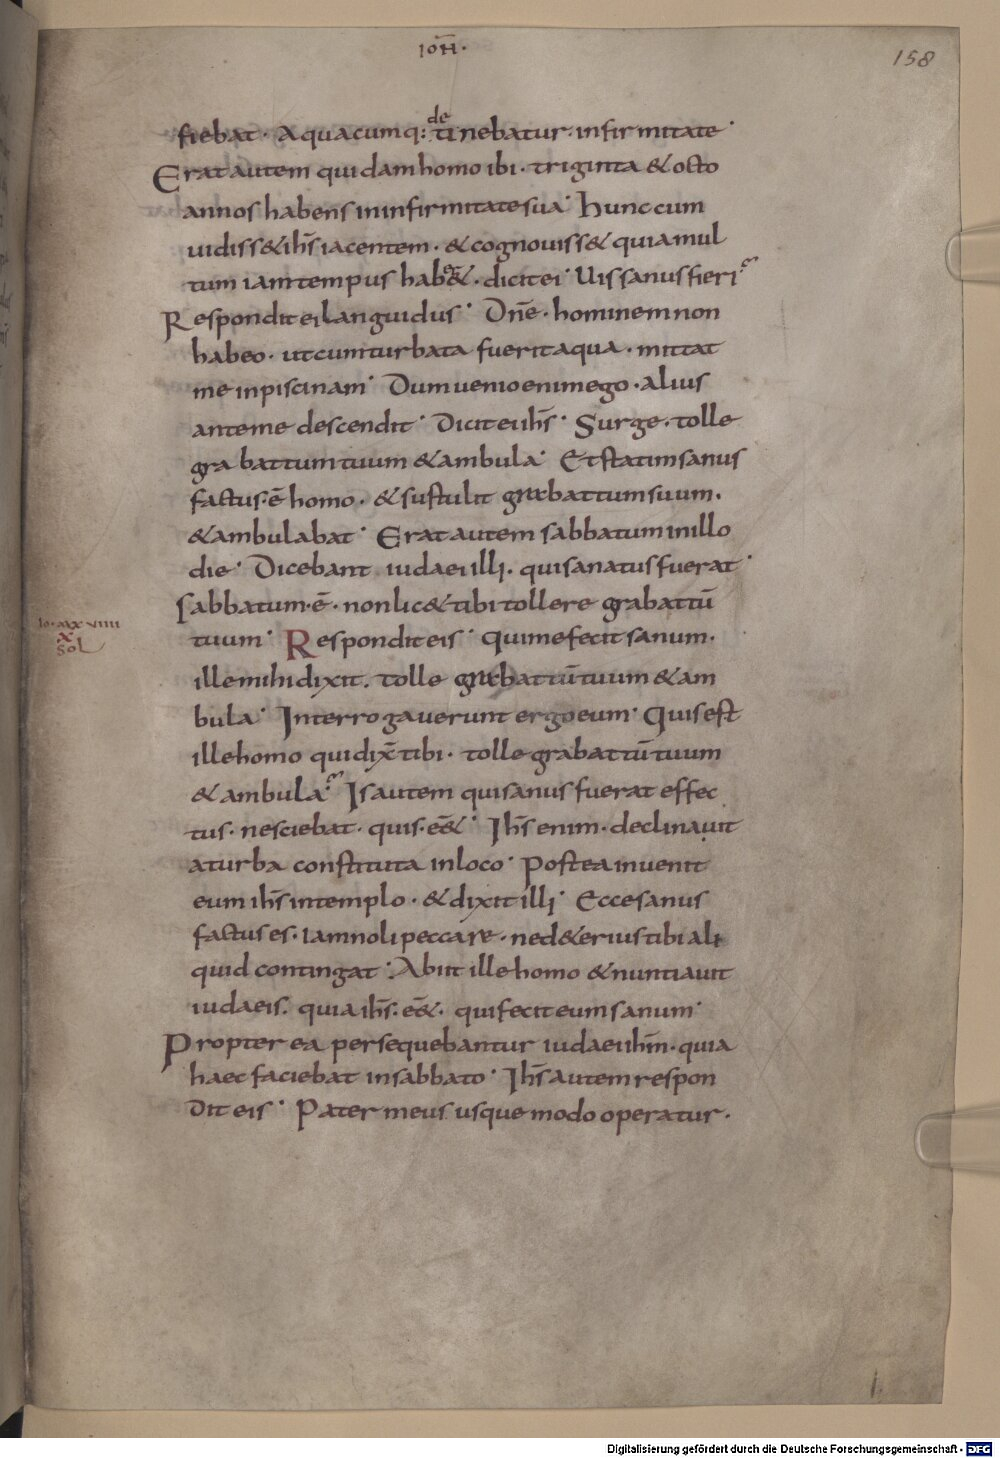 IOH̅·
158
fiebat · Aquacumq: detinebatur· infirmitate ·
Erat autem quidam homo ibi · triginta & octo
annos habens in infirmitate sua · Hunc cum
uidiss& ih̅s iacentem · & cognouiss& quia mul
tum iam tempus hab&· dicit ei · Uis sanus fieri
Respondit ei languidus · Dn̅e · hominem non
habeo · ut cum turbata fuerit aqua · mittat
me in piscinam · Dum uenio enim ego · alius
ante me descendit · Dicit ei ih̅s · Surge · tolle
grabattum tuum & ambula · Et statim sanus
factus · e̅ homo · & sustulit grabattum suum ·
& ambulabat · Erat autem sabbatum in illo
die · Dicebant iudaei illi · qui sanatus fuerat ·
Sabbatum · e̅ · non lic& tibi tollere grabattu̅
Io · xxxviiii
x
sol
tuum · Respondit eis · qui me fecit sanum ·
ille mihi dixit · tolle grabattu̅ tuum & am
bula · Interrogauerunt ergo eum · Quis est
ille homo qui dix̅ tibi · tolle grabattu̅ tuum
& ambula · Is autem qui sanus fuerat effec
tus · nesciebat · quis · ee̅& · Ih̅s enim · declinauit
a turba constituta in loco · Postea inuenit
eum ih̅s in templo · & dixit illi · Ecce sanus
factus es · iam noli peccare · ne d&erius tibi ali
quid contingat · Abiit ille homo & nuntiauit
iudaeis · quia ih̅s · ee̅& · qui fecit eum sanum ·
Propter ea persequebantur iudaei ih̅m · quia
haec faciebat in sabbato · Ih̅s autem respon
dit eis · Pater meus usque modo operatur ·
Digitalisierung gefördert durch die Deutsche Forschungsgemeinschaft - DFG